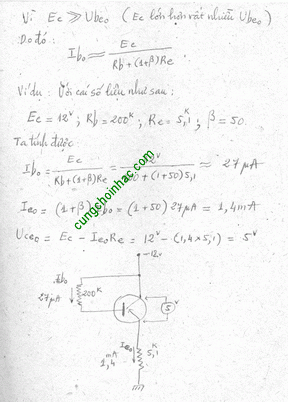 Vì Ec ≫ Ubeo (Ec lớn hơn rất nhiều Ubeo)
Do đó:
Ibo ≈ Ec / Rb + (1+β)Re
Ví dụ: Với các số liệu như sau:
Ec = 12V; Rb = 200K; Re = 5,1K; β = 50.
Ta tính được
Ibo = Ec / Rb + (1+β)Re = V / + (1+50)5,1 ≈ 27 μA
Ieo = (1+β) Ibo = (1+50) 27μA = 1,4mA
Uceo = Ec − IeoRe = 12V − (1,4 × 5,1) = 5V
cungchoinhac.com
−12V
Ibo
27μA
200K
5V
Ieo
1,4mA
5,1K